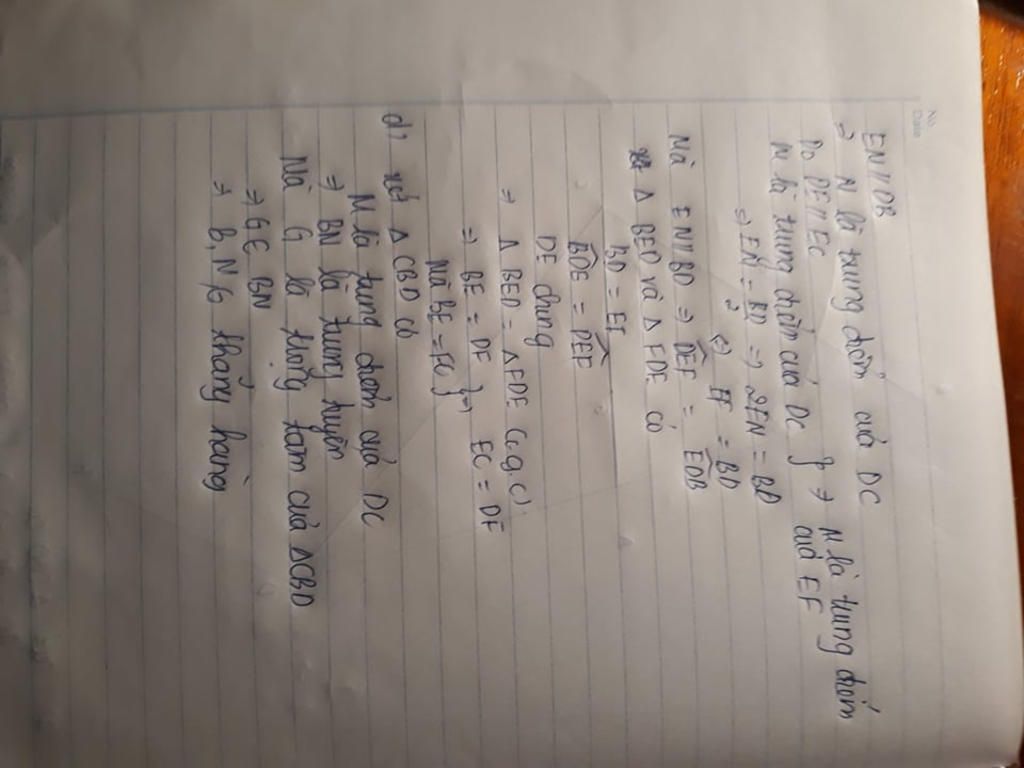 No.
Date
EN//DB
=> N là trung điểm của DC
Do DF//EC
N là trung điểm của DC } => N là trung điểm của EF
=> EN = BD/2 => 2EN = BD
<=> EF = BD
Mà EN//BD => DEF = EDB
Δ BED và Δ FDE có
BD = EF
BDE = DEF
DE chung
=> Δ BED = Δ FDE (c.g.c)
=> BE = DF
Mà BE = EC } => EC = DF
d) xét Δ CBD có
N là trung điểm của DC
=> BN là trung tuyến
Mà G là trọng tâm của ΔCBD
=> G ∈ BN
=> B, N, G thẳng hàng